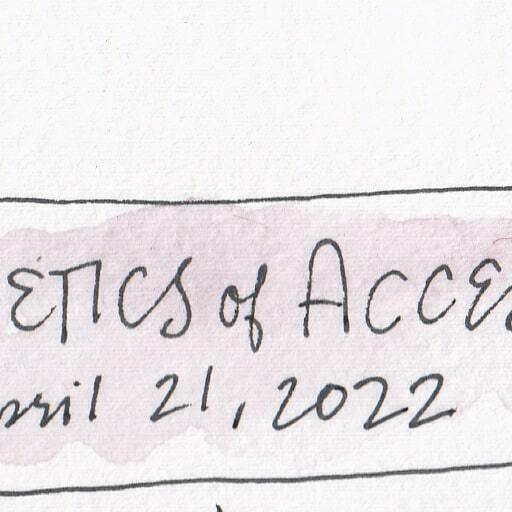 ETICS of ACCES
pril 21, 2022